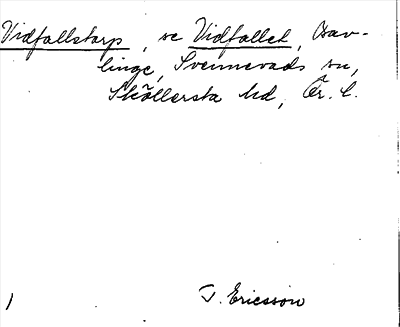 Vidfallstorp, se Vidfallet, Sav-
linge, Svennevads sn,
Sköllersta hd, Ör. l.
T. Ericsson